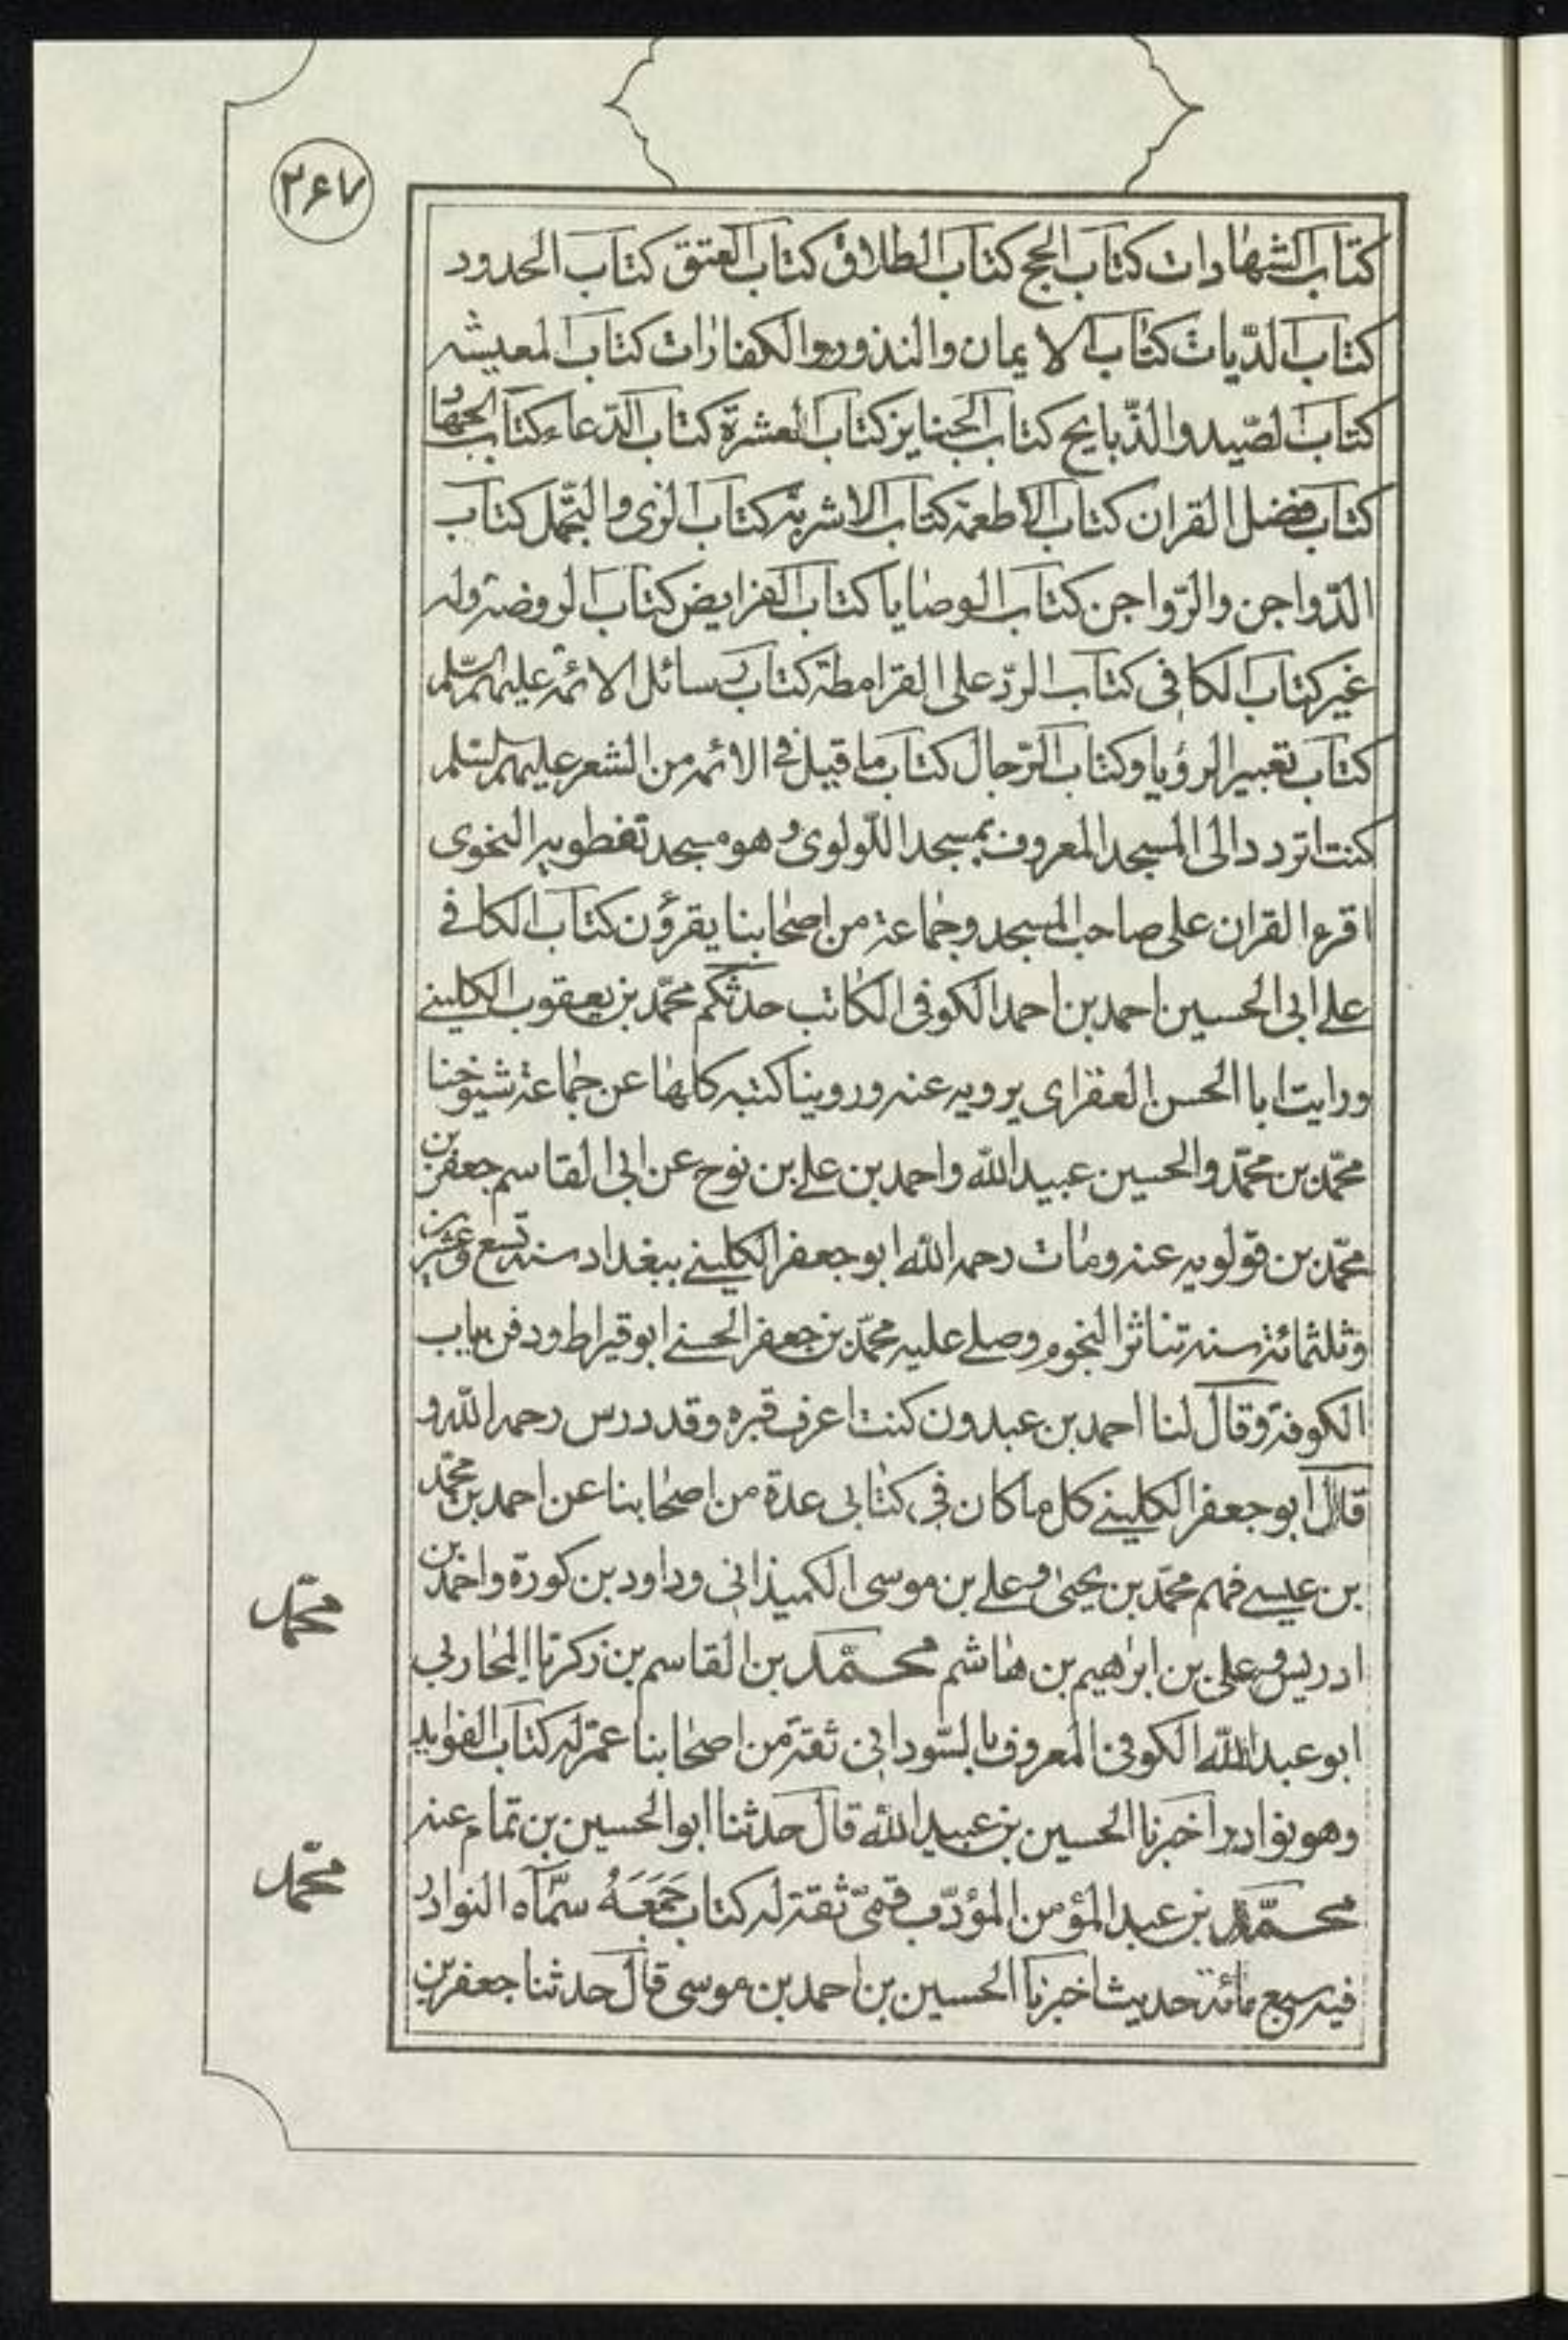 ٢٦٧
كتاب الشهادات كتاب الحج كتاب الطلاق كتاب العتق كتاب الحدود
كتاب الدّيات كتاب الايمان والنذور والكفارات كتاب المعيشه
كتاب الصّيد والذّبايح كتاب الجنايز كتاب العشرة كتاب الدّعاء كتاب الجهاد
كتاب فضل القران كتاب الاطعمة كتاب الاشربة كتاب الزى والتجّمل كتاب
الدّواجن والرّواجن كتاب الوصايا كتاب الفرايض كتاب الروضة وله
غير كتاب الكافى كتاب الردّ على القرامطة كتاب رسائل الائمة عليهم السّلم
كتاب تعبير الرؤيا وكتاب الرّجال كتاب ما قيل فى الائمه من الشعر عليهم السّلم
كنت اتردد الى المسجد المعروف بمسجد اللّولوى وهو مسجد نفطويه النحوى
اقرء القران على صاحب المسجد وجماعة من اصحابنا يقرؤن كتاب الكافى
على ابى الحسين احمد بن احمد الكوفى الكاتب حدثكم محمّد بن يعقوب الكلينى
ورايت ابا الحسن العقراى يرويه عنه وروينا كتبه كلها عن جماعة شيوخنا
محمّد بن محمّد والحسين عبيد اللّه واحمد بن على بن نوح عن ابى القاسم جعفر بن
محمّد بن قولويه عنه ومات رحمه اللّه ابو جعفر الكلينى ببغداد سنه تسع وعشرين
وثلثمائة سنه تناثر النجوم وصلى عليه محمّد بن جعفر الحسنى ابو قيراط ودفن بباب
الكوفة وقال لنا احمد بن عبدون كنت اعرف قبره وقد درس رحمه اللّه و
قال ابو جعفر الكلينى كل ما كان فى كتابى عدة من اصحابنا عن احمد بن محمّد
بن عيسى فهم محمّد بن يحيى وعلى بن موسى الكميذانى وداود بن كورة واحمد بن
ادريس وعلى بن ابراهيم بن هاشم محمّد بن القاسم بن زكريّا المحاربى
محمّد
ابو عبد اللّه الكوفى المعروف بالسّودانى ثقة من اصحابنا عمّر له كتاب الفوايد
وهو نوادر اخبرنا الحسين بن عبيد اللّه قال حدثنا ابو الحسين بن تمام عنه
محمّد بن عبد المؤمن المؤدّب قمىّ ثقة له كتاب جَمَعَهُ سمّاه النوادر
محمّد
فيه سبع مائة حديث اخبرنا الحسين بن احمد بن موسى قال حدثنا جعفر بن